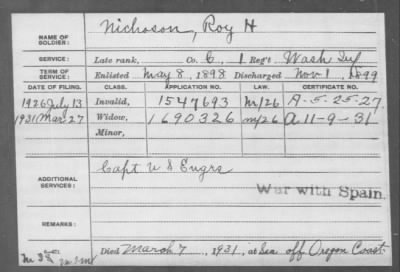 NAME OF SOLDIER: Nichoson, Roy H
SERVICE: Late rank, Co. C, 1 Reg't Wash Inf
TERM OF SERVICE: Enlisted May 8, 1898 Discharged Nov 1, 1899
DATE OF FILING. CLASS. APPLICATION NO. LAW. CERTIFICATE NO.
1926 July 13 Invalid, 1547693 m/26 A-5-25-27,
1931 Mar 27 Widow, 1690326 m/26 A 11-9-31
Minor,
ADDITIONAL SERVICES: Capt U S Engrs
War with Spain.
REMARKS:
Died March 7, 1931, at Sea off Oregon Coast